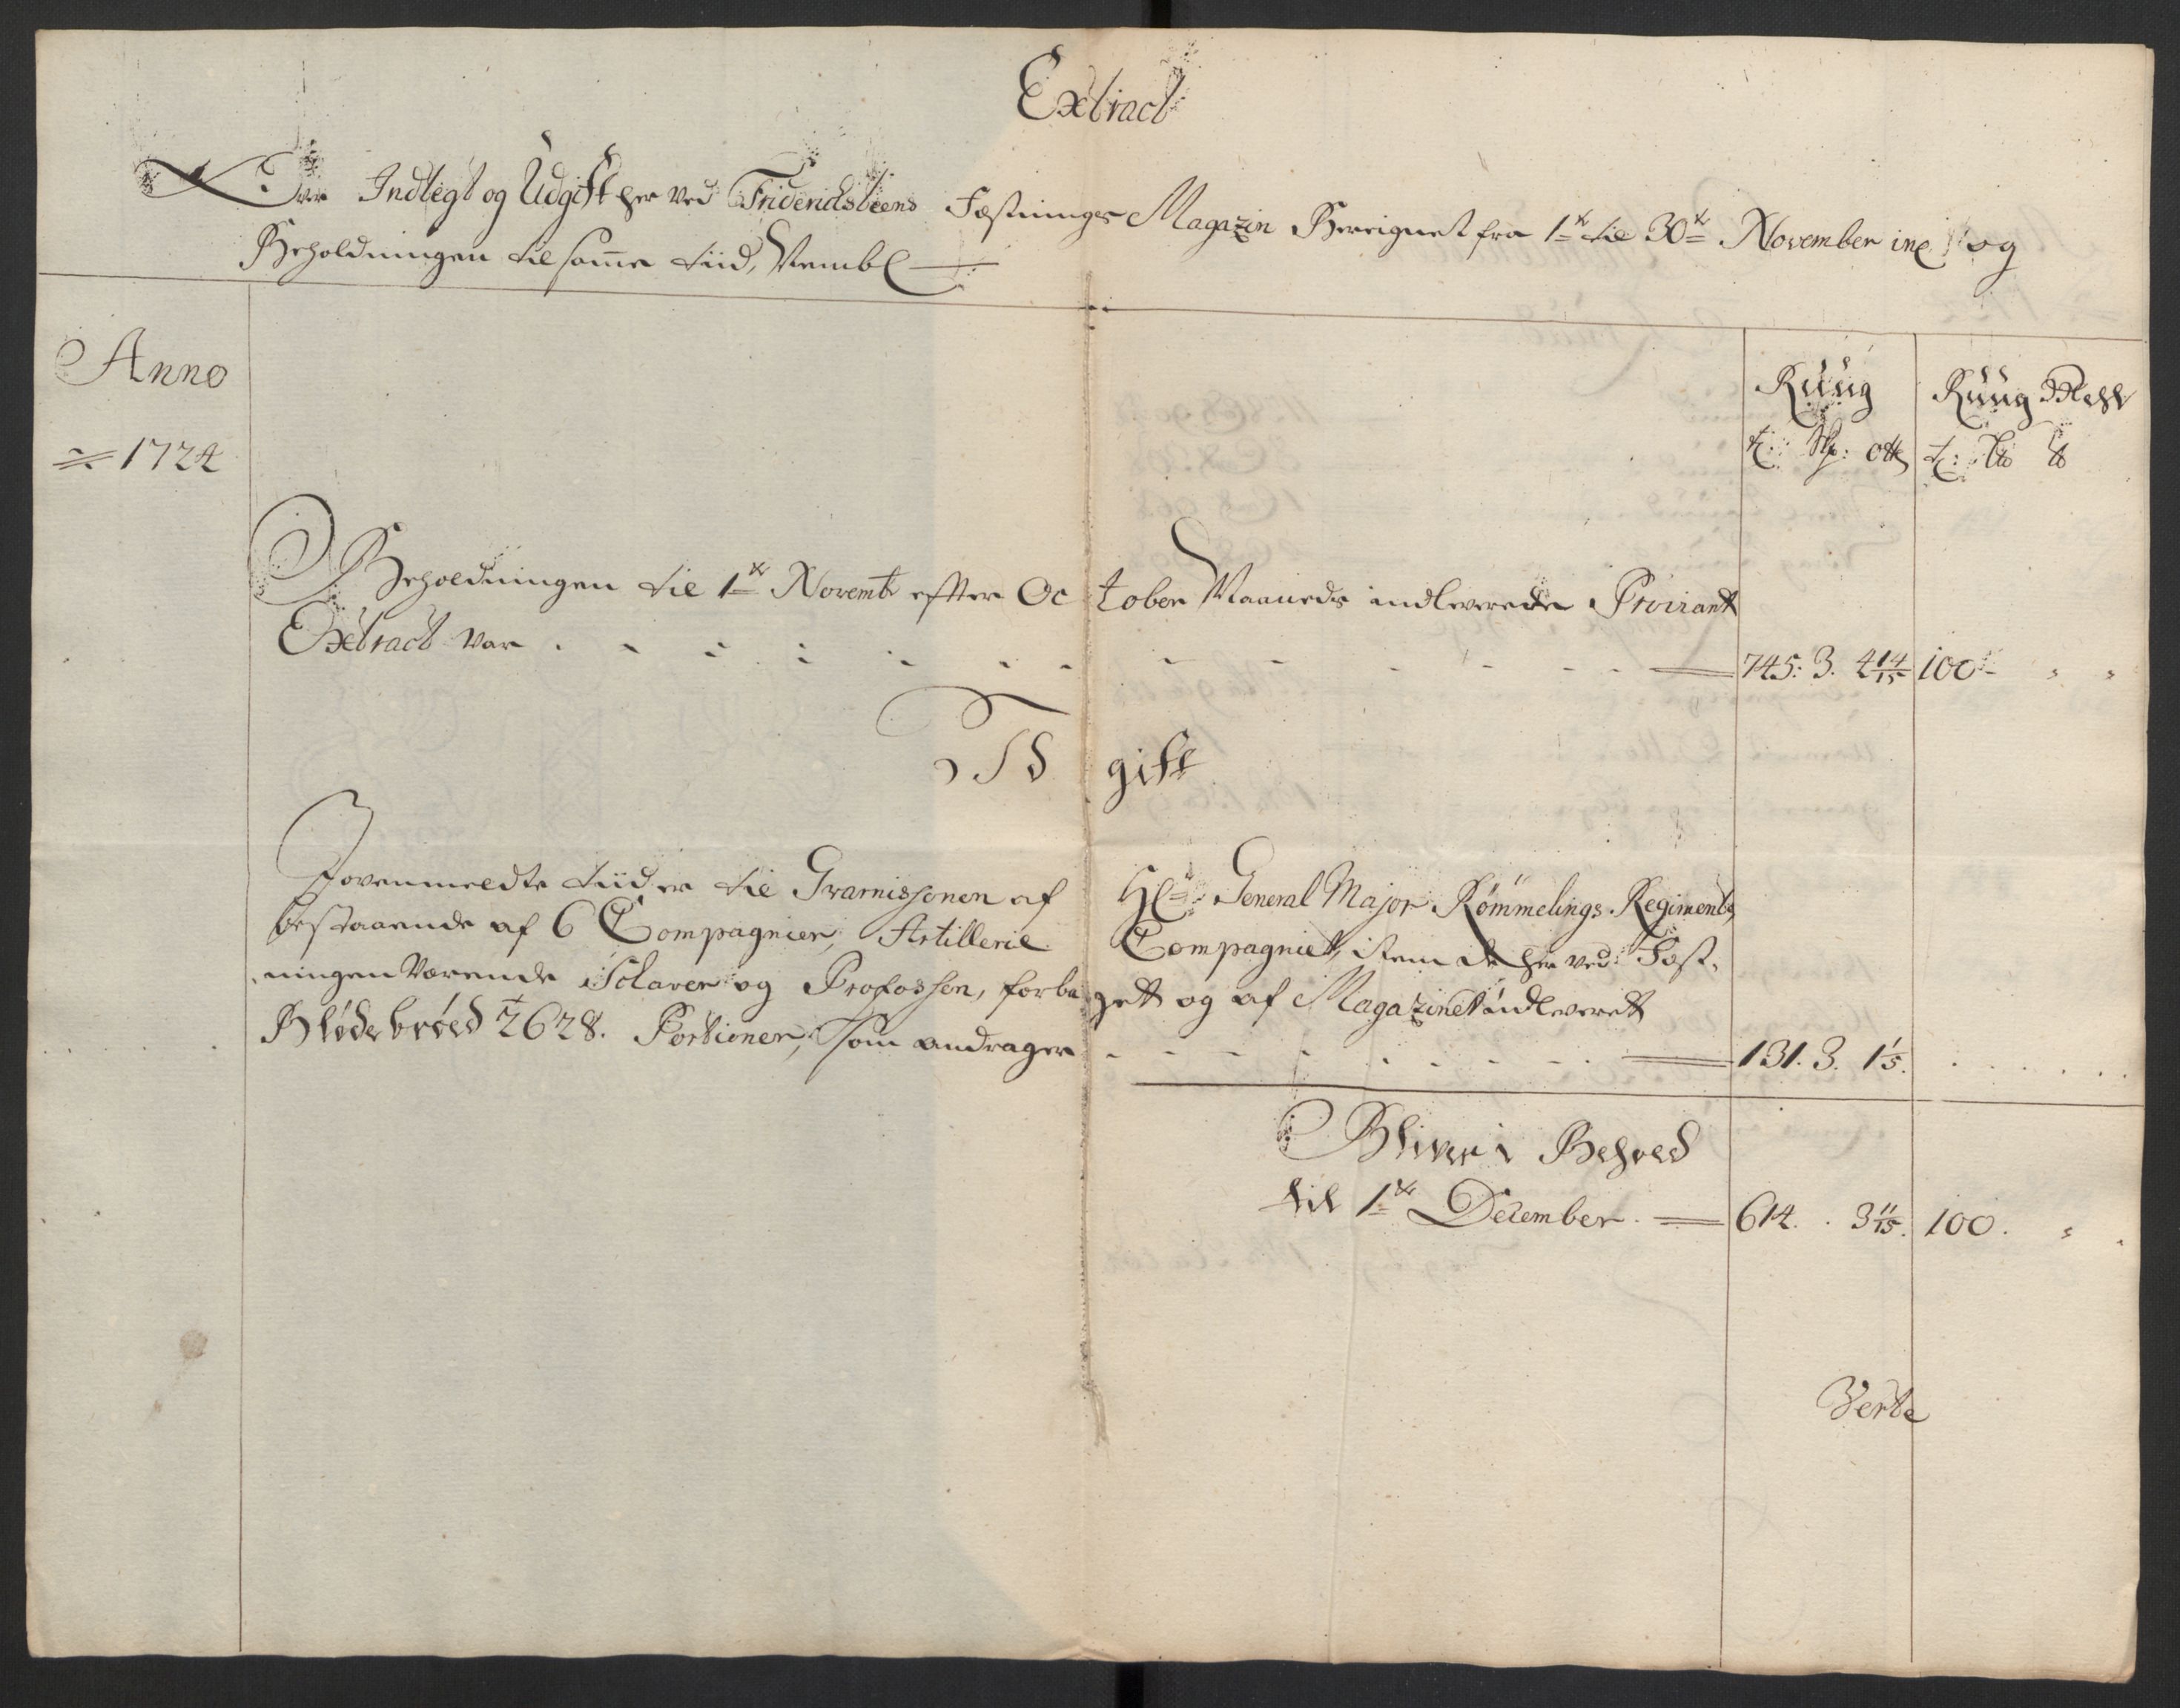 Extract
Over Indlegt og Udgift her ved Fridericksteens Festnings Magazin Bereignet fra 1te til 30te November incl og
Beholdningen til same tiid, Nembl
Anno
1724
Ruug
Ruug Mehl
t: skp: ottk
t: lb ℔
Beholdningen til 1te Novembr effter October Maaneds indleverede Proviant
Extract var
745: 3. 4 14/15 100
Udgift
I ovenmeldte tiid er til Gvarnissonen af Hr General Major Rømmelings Regiment,
bestaaende af 6 Compagnier, Artillerie Compagniet, item de her ved Fest-
ningen Værende Sclaver og Profossen, forbaget og af Magazinet indleveret
Bløde brød 2628. Portioner, som andrager
131. 3. 1 1/5.
Bliver i Behold
til 1te December
614. . 3 11/15. 100.
Verte